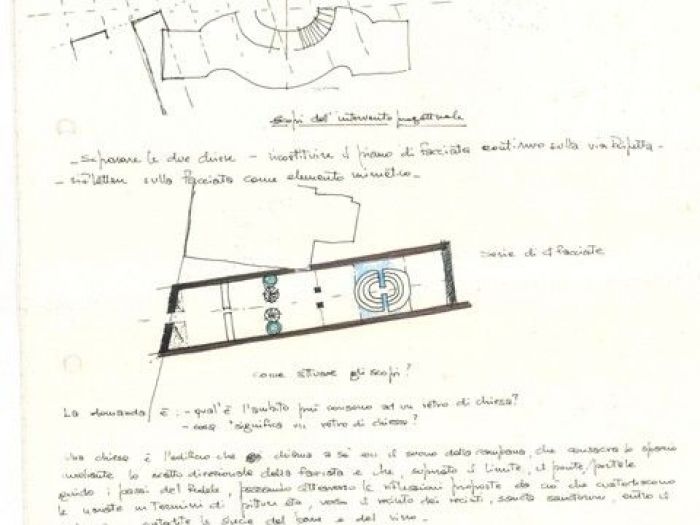 scopi dell'intervento progettuale
- separare le due chiese - ricostituire il piano di facciata continuo sulla via Ripetta -
- sulla facciata come elemento
serie di 4 facciate
come attuare gli scopi?
La domanda è: - qual'è l'ambito più consono ad un retro di chiesa?
- cosa significa un retro di chiesa?
Una chiesa è l'edificio che chiama a sé con il suono della campana, che consacra lo spazio
mediante la direzionale della facciata e che, superato il limite, il ponte/portale
guida i passi del fedele, passando attraverso le proposte da ciò che custodiscono
le in termini di pittura etc, verso il recinto dei recinti, sancta sanctorum, entro il
le specie del pane e del vino.